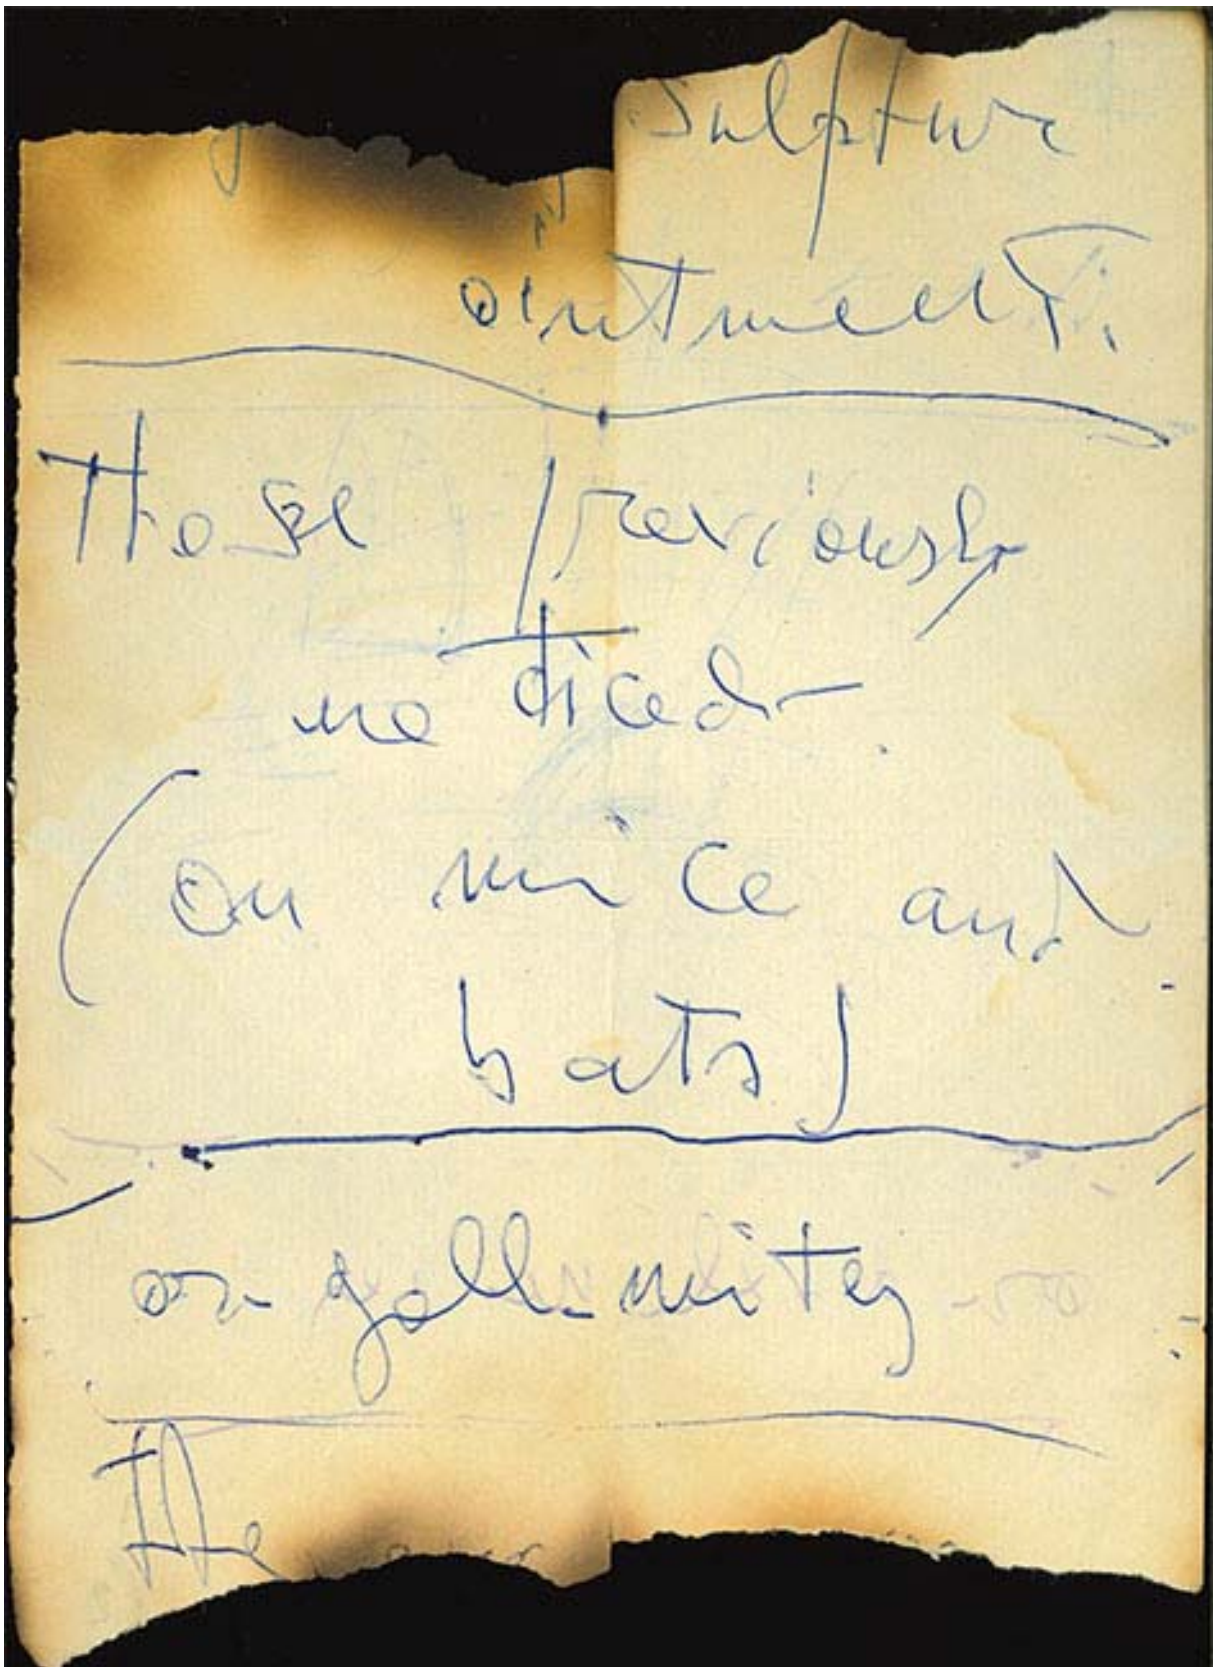 Sulpture
ointment.
Those previously
noticed.
(on mice and
bats)
or gall-mites
The